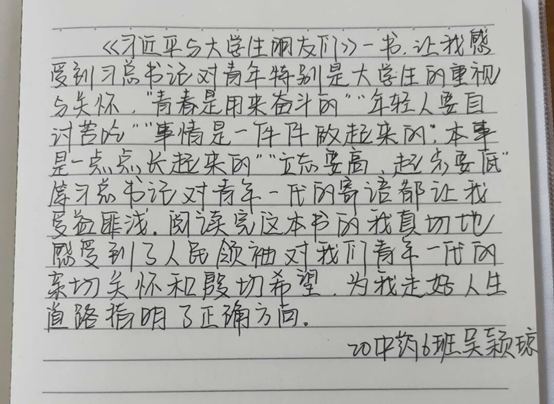 《习近平与大学生朋友们》一书，让我感
受到习总书记对青年特别是大学生的重视
与关怀，“青春是用来奋斗的”“年轻人要自
讨苦吃”“事情是一件件做起来的；本事
是一点点长起来的”“立志要高，起步要低”
等习总书记对青年一代的寄语都让我
受益匪浅。阅读完这本书的我真切地
感受到了人民领袖对我们青年一代的
亲切关怀和殷切希望，为我走好人生
道路指明了正确方向。
20中药6班吴颖琼